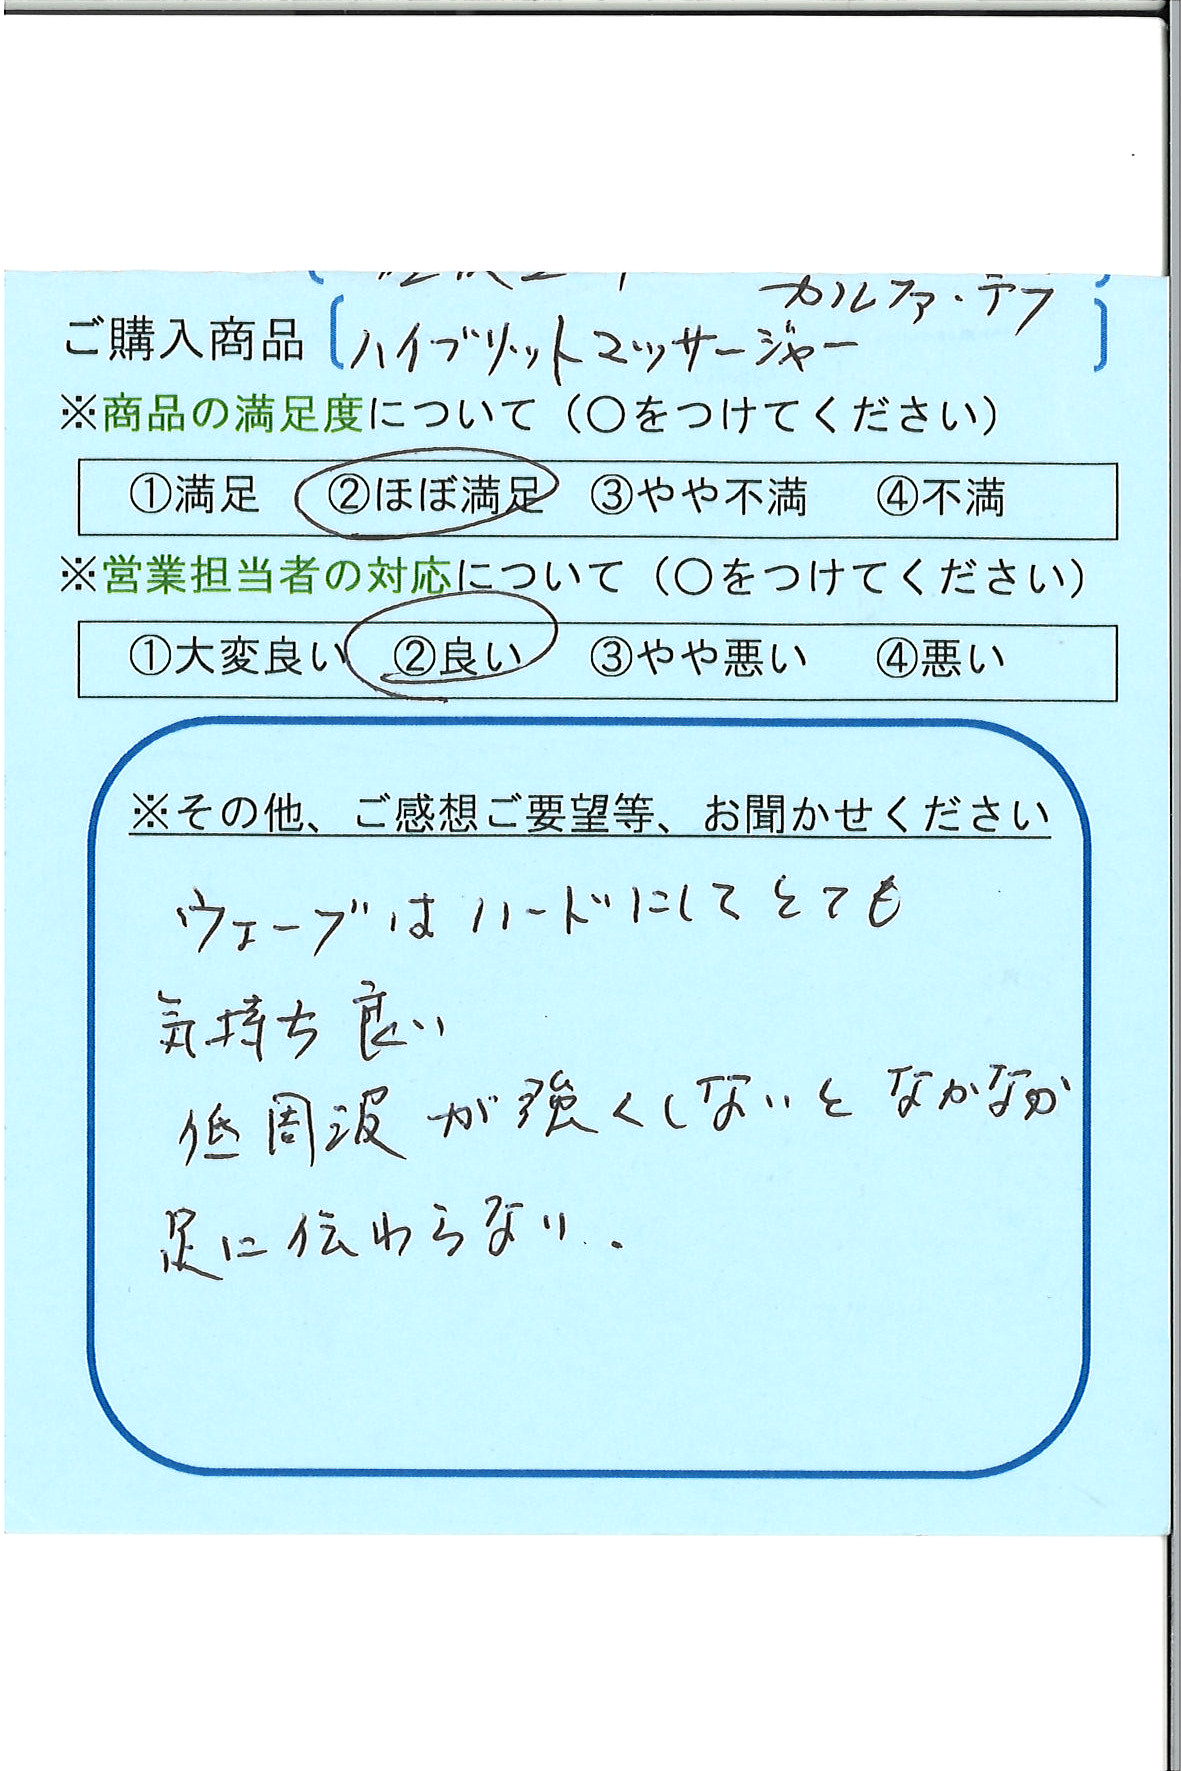 カルファ・デフ
ご購入商品 ハイブリットマッサージャー
※商品の満足度について（○をつけてください）
①満足 ②ほぼ満足 ③やや不満 ④不満
※営業担当者の対応について（○をつけてください）
①大変良い ②良い ③やや悪い ④悪い
※その他、ご感想ご要望等、お聞かせください
ウェーブはハードにしてとても
気持ち良い
低周波が強くしないとなかなか
足に伝わらない.